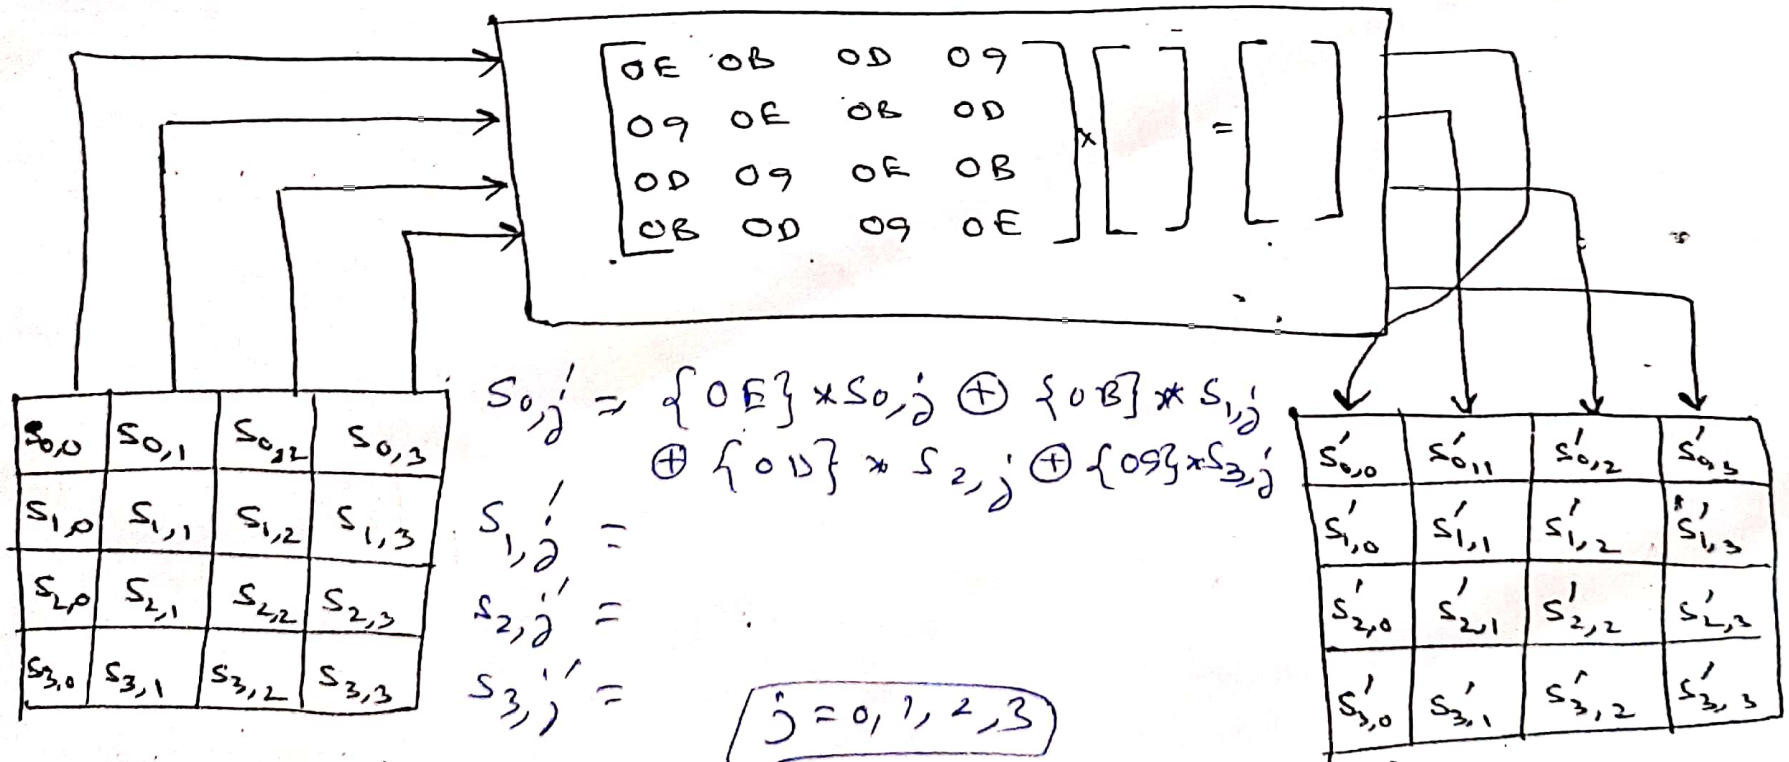 [ 0E 0B 0D 09 ] × [ ] = [ ]
09 0E 0B 0D
0D 09 0E 0B
0B 0D 09 0E
S0,0 S0,1 S0,2 S0,3
S1,0 S1,1 S1,2 S1,3
S2,0 S2,1 S2,2 S2,3
S3,0 S3,1 S3,2 S3,3
S0,j' = {0E} * S0,j ⊕ {0B} * S1,j
⊕ {0D} * S2,j ⊕ {09} * S3,j
S1,j' =
S2,j' =
S3,j' =
j = 0, 1, 2, 3
S'0,0 S'0,1 S'0,2 S'0,3
S'1,0 S'1,1 S'1,2 S'1,3
S'2,0 S'2,1 S'2,2 S'2,3
S'3,0 S'3,1 S'3,2 S'3,3